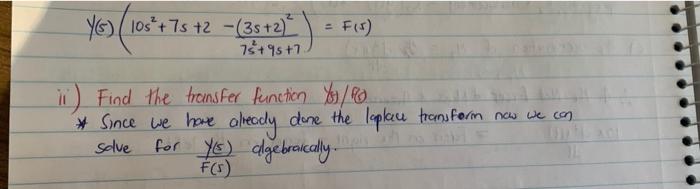 Y(s) ( 10s² + 7s + 2 - (3s+2)² / 7s² + 9s + 7 ) = F(s)
ii) Find the transfer function Y(s)/F(s)
* Since we have already done the laplace transform now we can
solve for Y(s)/F(s) algebraically.